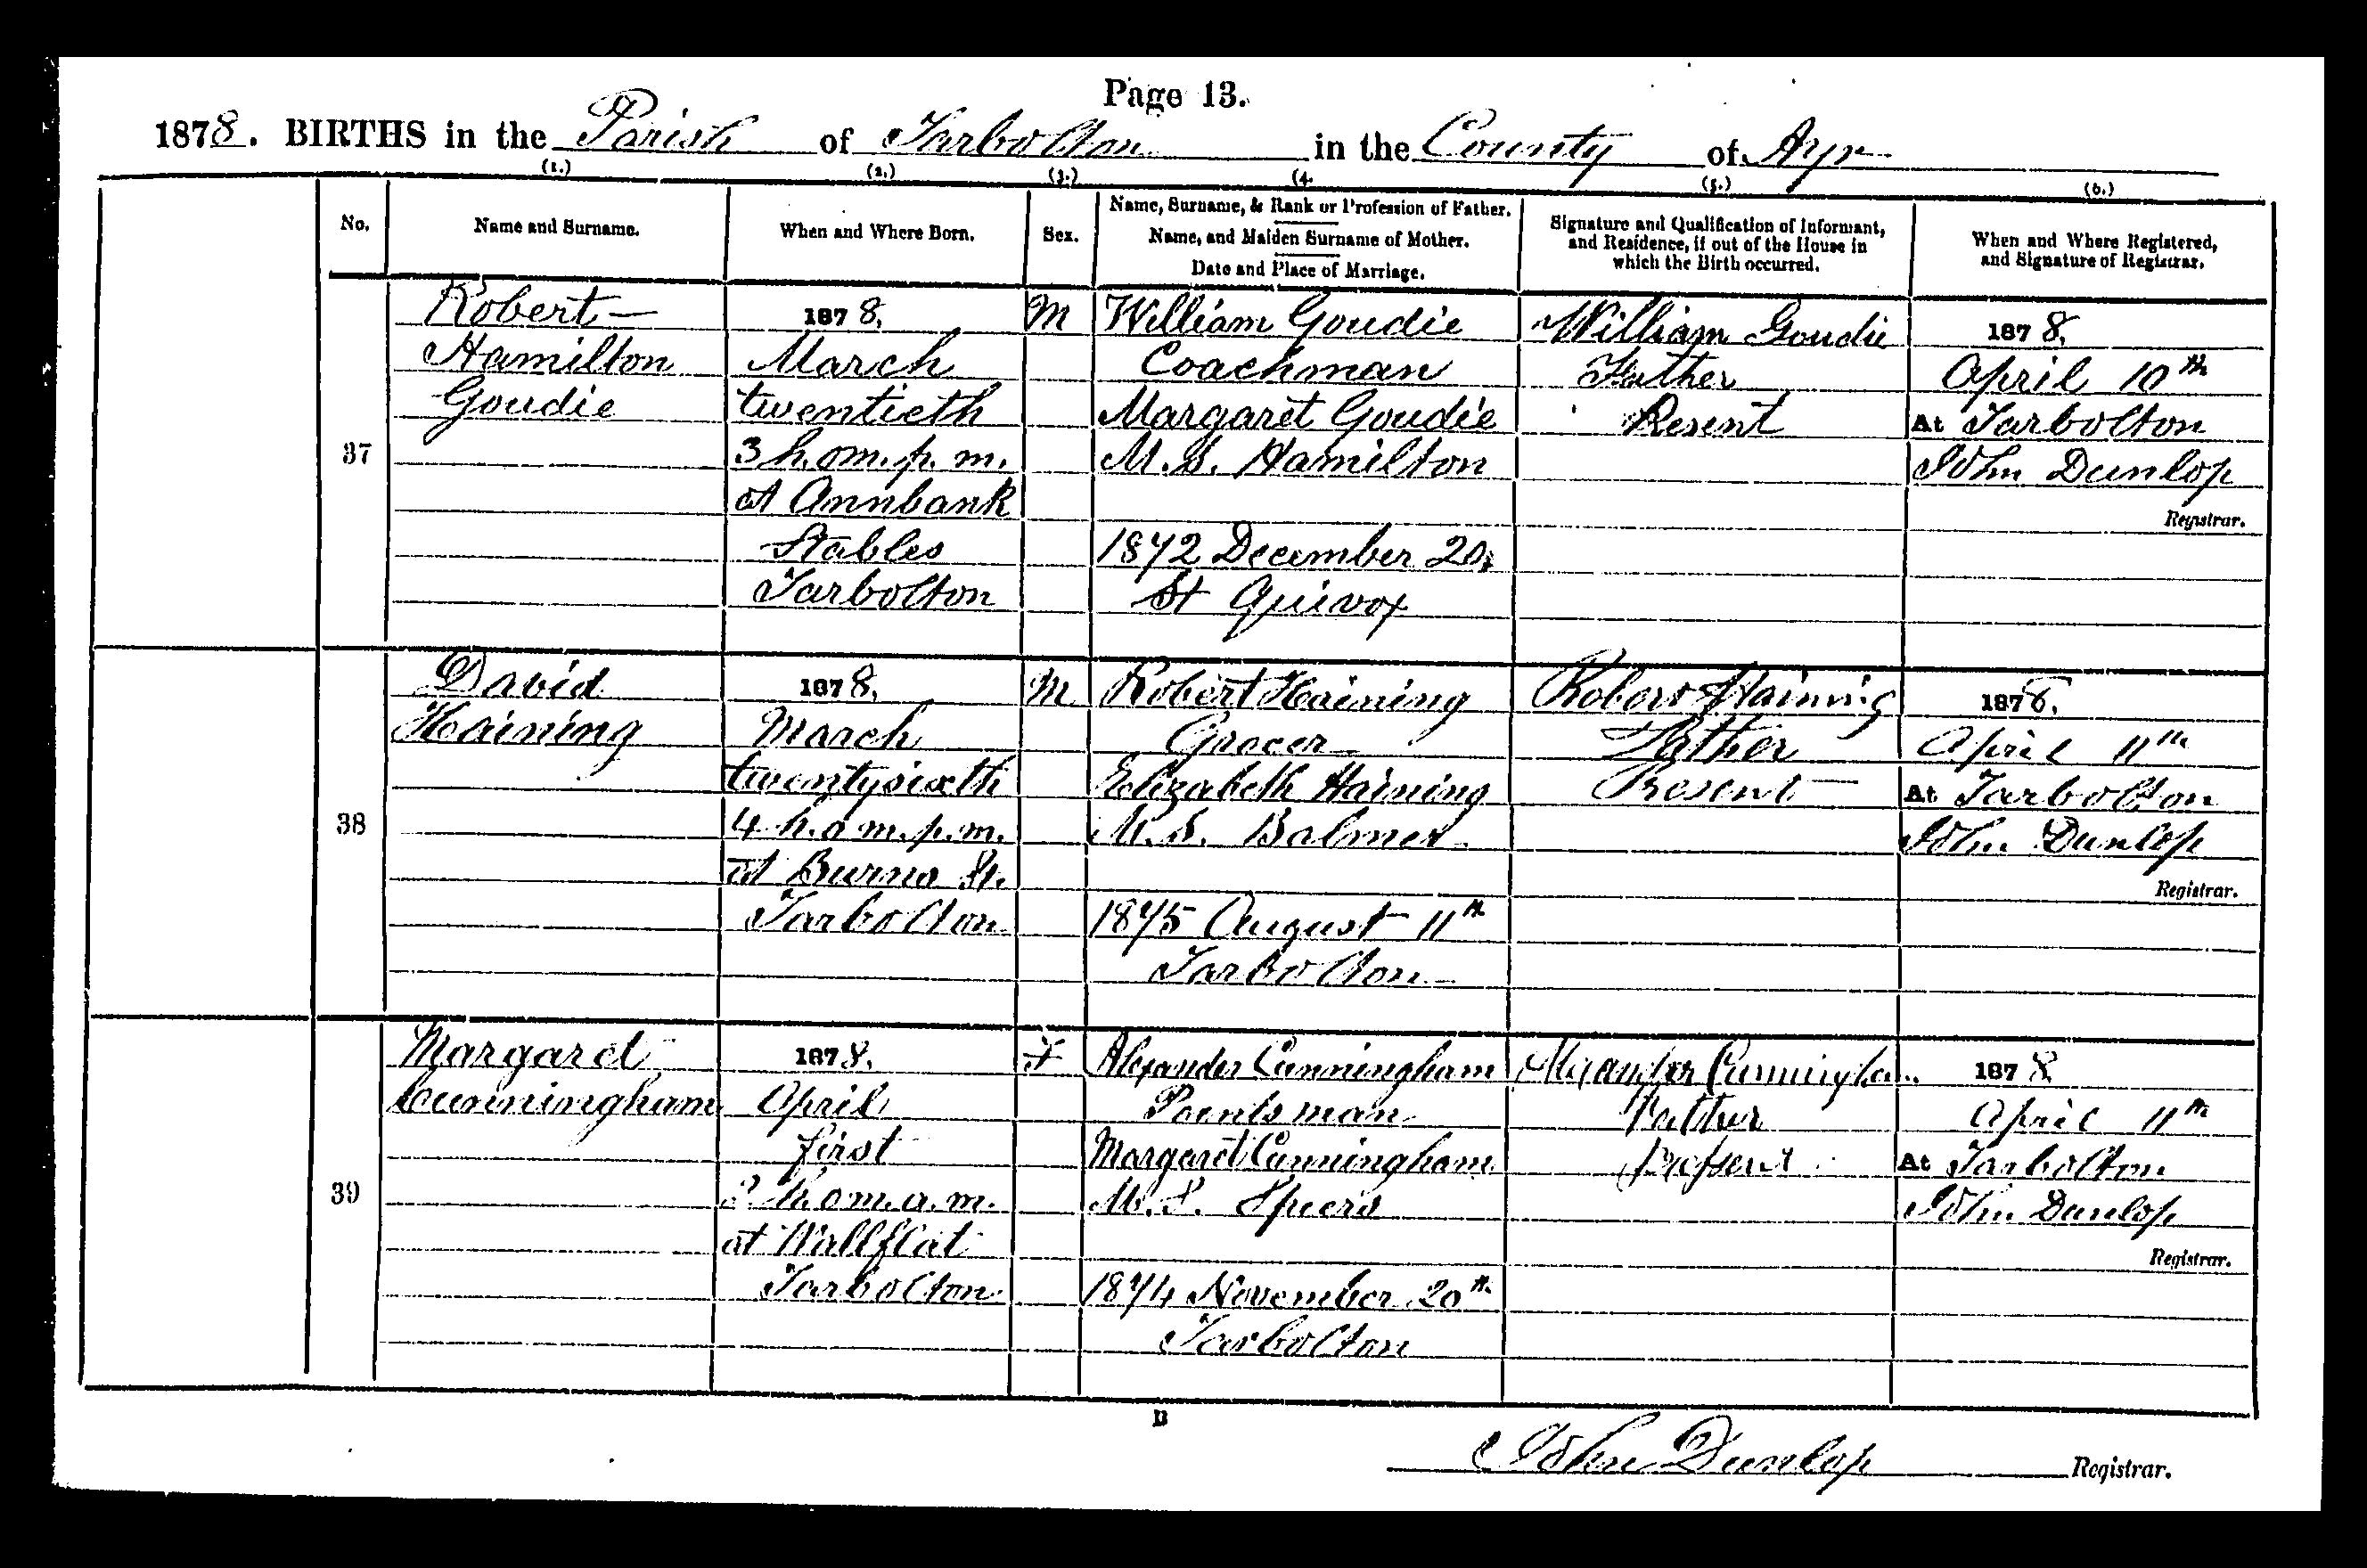 Page 13.
1878. BIRTHS in the Parish of Tarbolton in the County of Ayr
(1.) (2.) (3.) (4. (5.) (6.)
No.
Name and Surname.
When and Where Born.
Sex.
Name, Surname, & Rank or Profession of Father.
Name, and Maiden Surname of Mother.
Date and Place of Marriage.
Signature and Qualification of Informant,
and Residence, if out of the House in
which the Birth occurred.
When and Where Registered,
and Signature of Registrar.
37
Robert
Hamilton
Goudie
1878.
March
twentieth
3 h. 0 m. p. m.
at Annbank
Stables
Tarbolton
M
William Goudie
Coachman
Margaret Goudie
M. S. Hamilton
1872 December 20.
St Quivox
William Goudie
Father
Present
1878.
April 10th
At Tarbolton
John Dunlop
Registrar.
38
David
Haining
1878.
March
twentysixth
4 h. 0 m. p. m.
at Burns St.
Tarbolton
M
Robert Haining
Grocer
Elizabeth Haining
M. S. Balmer
1875 August 11th
Tarbolton
Robert Haining
Father
Present
1878.
April 11th
At Tarbolton
John Dunlop
Registrar.
39
Margaret
Cunningham
1878.
April
first
h. 0 m. a. m.
at Wallflat
Tarbolton
F
Alexander Cunningham
Pointsman
Margaret Cunningham
M. S. Speers
1874 November 20th
Tarbolton
Alexander Cunningham
Father
present
1878
April 11th
At Tarbolton
John Dunlop
Registrar.
B
John Dunlop Registrar.